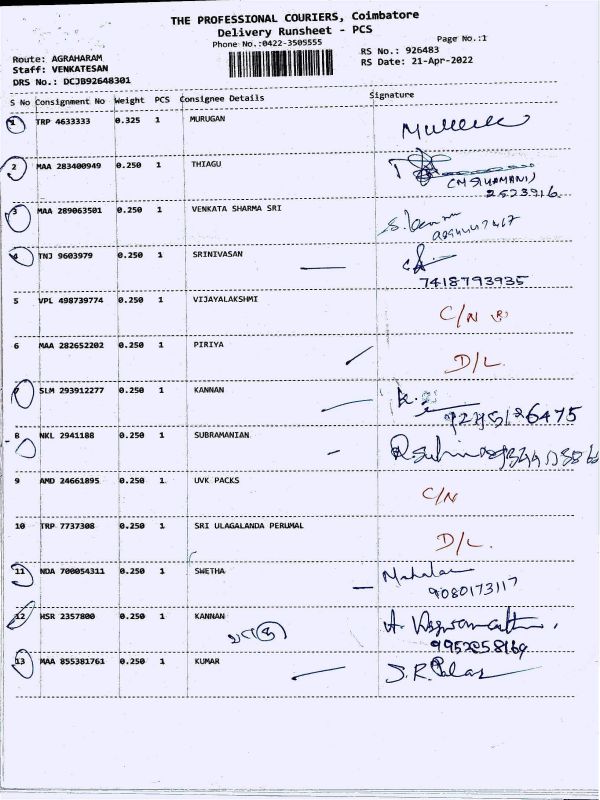 THE PROFESSIONAL COURIERS, Coimbatore
Delivery Runsheet - PCS
Phone No.:0422-3505555
Page No.:1
Route: AGRAHARAM
RS No.: 926483
Staff: VENKATESAN
RS Date: 21-Apr-2022
DRS No.: DCJB92648301
S No Consignment No Weight PCS Consignee Details Signature
1 TRP 4633333 0.325 1 MURUGAN
2 MAA 283400949 0.250 1 THIAGU
3 MAA 289063501 0.250 1 VENKATA SHARMA SRI
4 TNJ 9603979 0.250 1 SRINIVASAN
7418793935
5 VPL 498739774 0.250 1 VIJAYALAKSHMI C/N
6 MAA 282652202 0.250 1 PIRIYA D/L
7 SLM 293912277 0.250 1 KANNAN
8 NKL 2941188 0.250 1 SUBRAMANIAN
9 AMD 24661895 0.250 1 UVK PACKS C/N
10 TRP 7737308 0.250 1 SRI ULAGALANDA PERUMAL D/L.
11 NDA 700054311 0.250 1 SWETHA
9080173117
12 HSR 2357800 0.250 1 KANNAN
9952258169
13 MAA 855381761 0.250 1 KUMAR